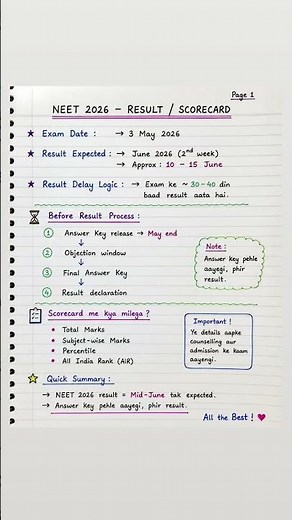 Page 1
NEET 2026 – RESULT / SCORECARD
★ Exam Date : → 3 May 2026
★ Result Expected : → June 2026 (2nd week)
→ Approx : 10 – 15 June
★ Result Delay Logic : → Exam ke ~ 30-40 din
baad result aata hai.
Before Result Process :
1 Answer Key release → May end
↓
2 Objection window
↓
3 Final Answer Key
↓
4 Result declaration
Note :
Answer key pehle
aayegi, phir
result.
Scorecard me kya milega ?
• Total Marks
• Subject-wise Marks
• Percentile
• All India Rank (AIR)
Important !
Ye details aapke
counselling aur
admission ke kaam
aayengi.
Quick Summary :
→ NEET 2026 result = Mid-June tak expected.
→ Answer key pehle aayegi, phir result.
All the Best ! ♥